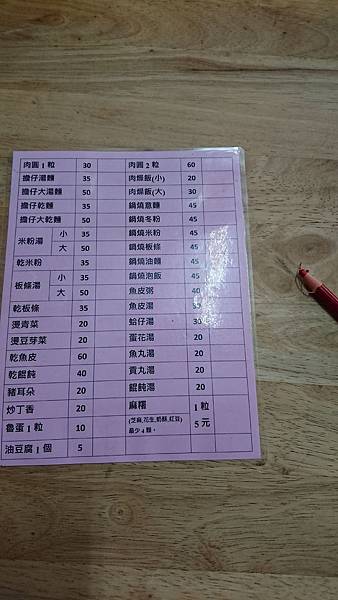 肉圓1粒 30 肉圓2粒 60
擔仔湯麵 35 肉燥飯(小) 20
擔仔大湯麵 50 肉燥飯(大) 30
擔仔乾麵 35 鍋燒意麵 45
擔仔大乾麵 50 鍋燒冬粉 45
米粉湯 小 35 鍋燒米粉 45
大 50 鍋燒板條 45
乾米粉 35 鍋燒油麵 45
板條湯 小 35 鍋燒泡飯 45
大 50 魚皮粥 40
乾板條 35 魚皮湯
燙青菜 20 蛤仔湯 30
燙豆芽菜 20 蛋花湯 20
乾魚皮 60 魚丸湯 20
乾餛飩 40 貢丸湯 20
豬耳朵 20 餛飩湯 20
炒丁香 20 麻糬 1粒
魯蛋1粒 10 (芝麻,花生,奶酥,紅豆) 5元
最少4顆。
油豆腐1個 5